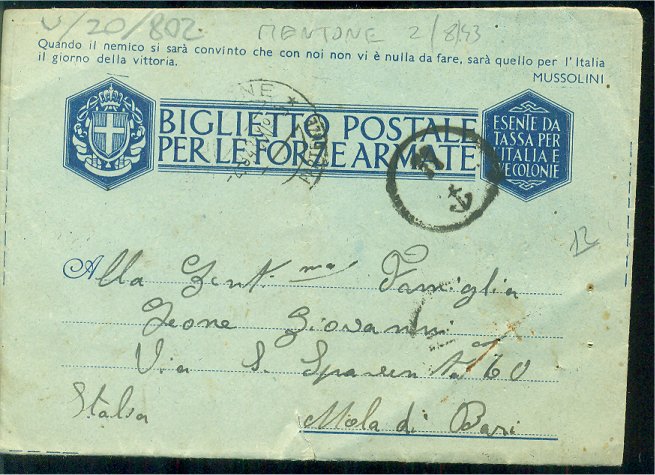 V/20/802 MENTONE 2/8/43
Quando il nemico si sarà convinto che con noi non vi è nulla da fare, sarà quello per l'Italia
il giorno della vittoria.
MUSSOLINI
BIGLIETTO POSTALE
PER LE FORZE ARMATE
ESENTE DA
TASSA PER
L'ITALIA E
LE COLONIE
12
Alla Gent.ma Famiglia
Leone Giovanni
Via S. 60
Italia Mola di Bari